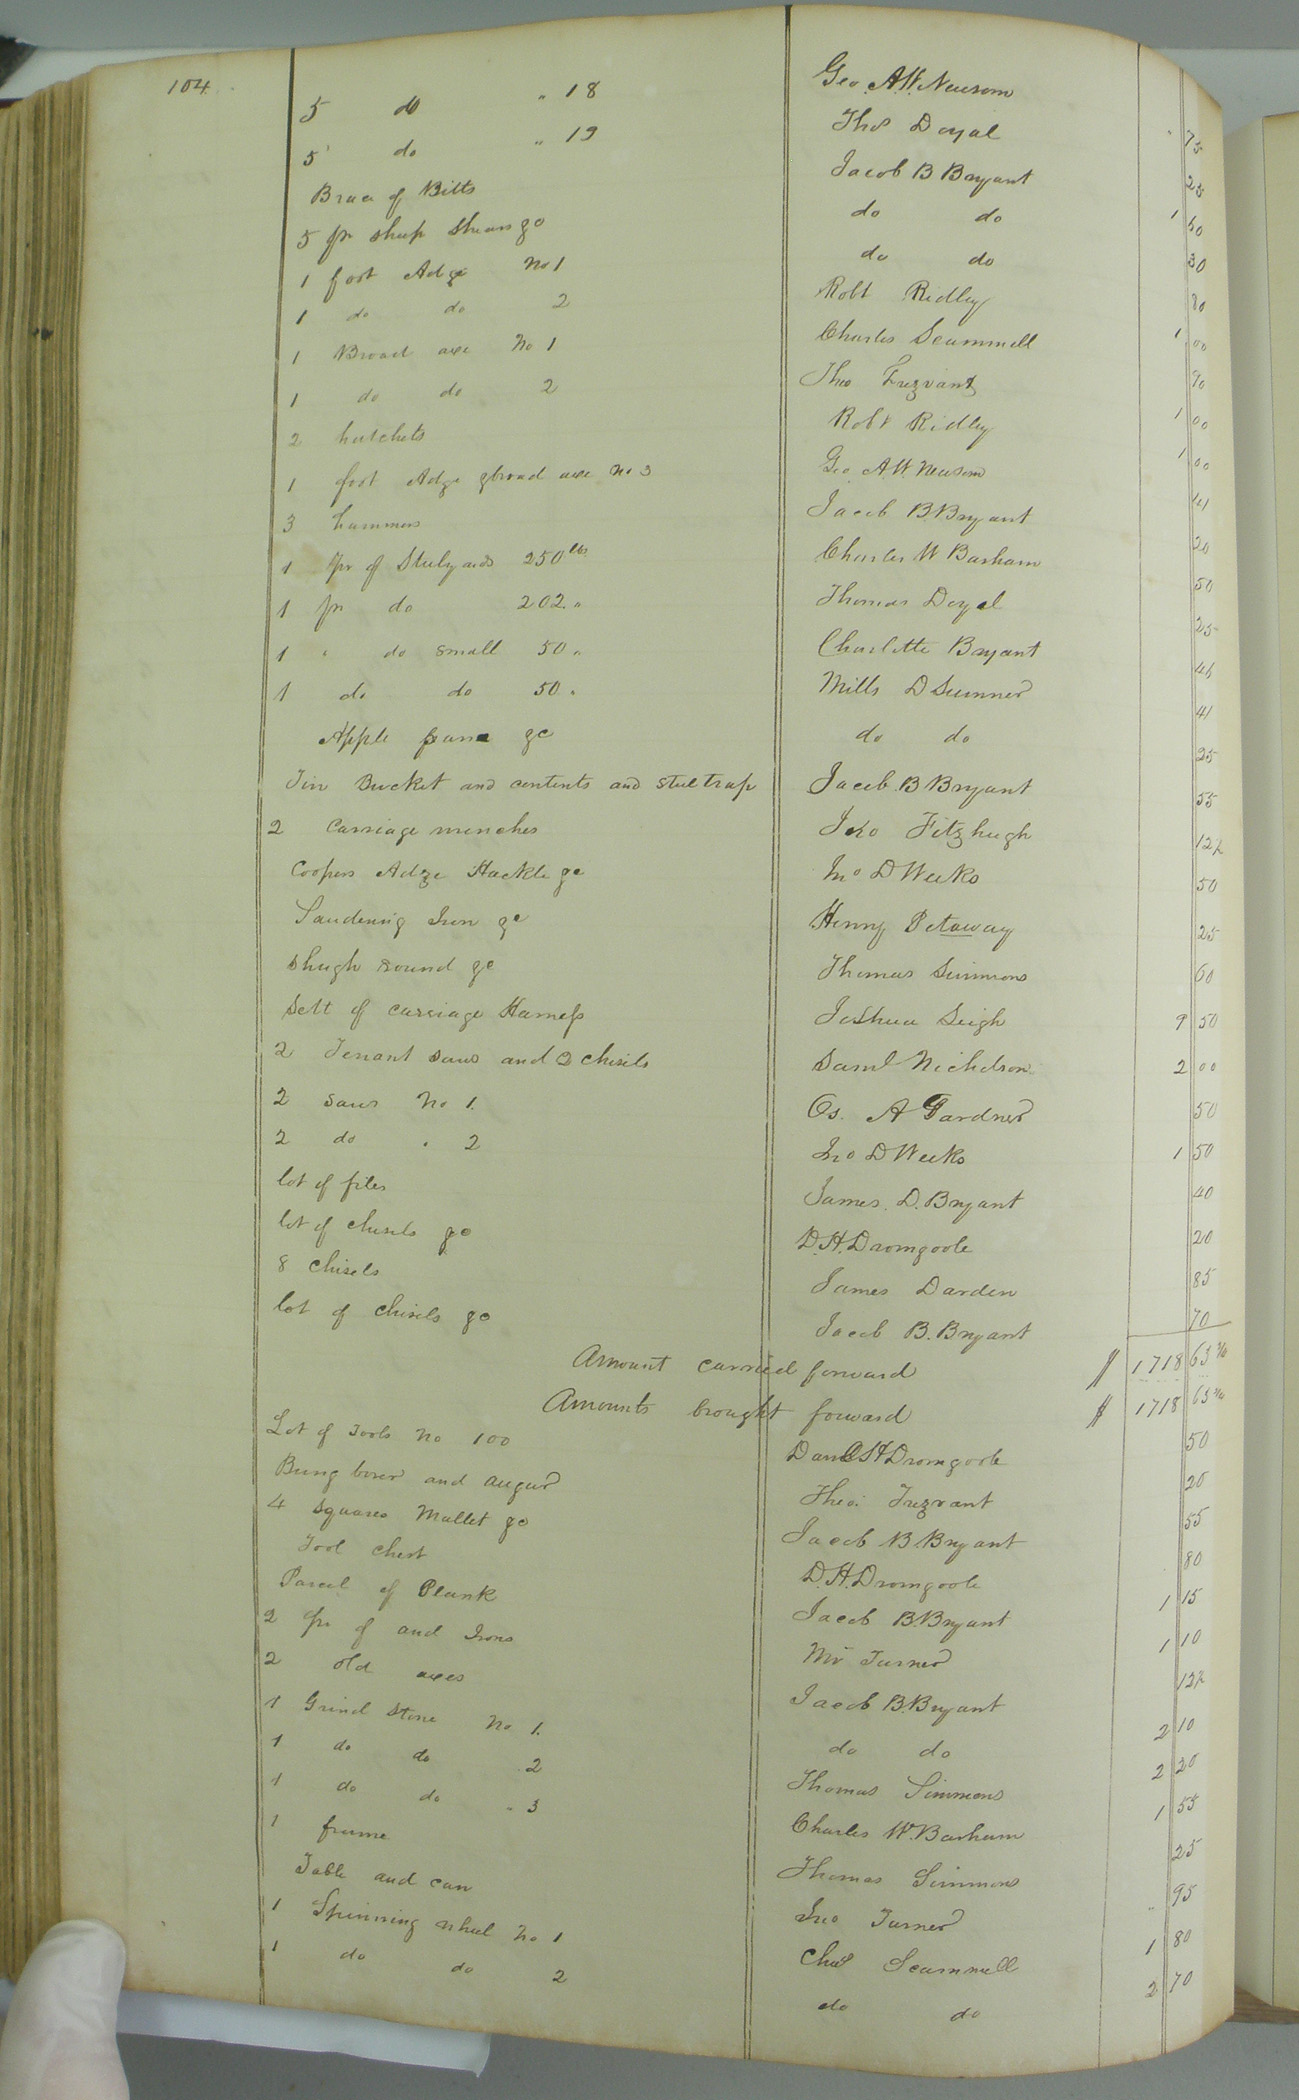 104
5 do " 18 Geo. A. W. Newsom
5 do " 19 Thos Doyal " 75
Brace of Bitts Jacob B Bryant 25
5 pr sheep shears &c do do 1 50
1 foot Adze No 1 do do 30
1 do do 2 Robt Ridley 80
1 Broad axe No 1 Charles Scammell 1 00
1 do do 2 Theo Trezvant 90
2 hatchets Robt Ridley 1 00
1 foot Adze & broad axe No 3 Geo. A. W. Newsom 1 00
3 hammers Jacob B Bryant 41
1 pr of Steelyards 250 lbs Charles W Barham 20
1 pr do 202 " Thomas Doyal 50
1 " do small 50 " Charlotte Bryant 25
1 do do 50 " Mills D Sumner 46
Apple &c do do 41
Tin Bucket and contents and steel trap Jacob B Bryant 25
2 Carriage winches Jno Fitzhugh 55
Coopers Adze Hackle &c Jno D Weeks 12½
Saudering Iron &c Henry Petaway 50
round &c Thomas Simmons 25
Sett of carriage Harness Joshua Leigh 60
2 Tenant saws and 2 chisels Saml Nicholson 9 50
2 saws No 1. Os. A Gardner 2 00
2 do " 2 Jno D Weeks 50
lot of files James. D. Bryant 1 50
lot of chisels &c D. H. Dromgoole 40
8 chisels James Darden 20
lot of chisels &c Jacob B. Bryant 85
70
Amount carried forward $ 1718 63 ¾
Amounts brought forward $ 1718 63 ¾
Lot of Tools No 100 Danl H Dromgoole 50
Bung borer and augur Theo: Trezvant 20
4 squares Mallet &c Jacob B. Bryant 55
Tool chest D. H. Dromgoole 80
Parcel of Plank Jacob B. Bryant 1 15
2 pr of and Irons Mr Turner 1 10
2 old axes Jacob B. Bryant 12½
1 Grind Stone No 1. do do 2 10
1 do do 2 Thomas Simmons 2 20
1 do do " 3 Charles W. Barham 1 55
1 frame Thomas Simmons 25
Table and can Jno Turner " 95
1 Spinning wheel No 1 Chas Scammell 1 80
1 do do 2 do do 2 70